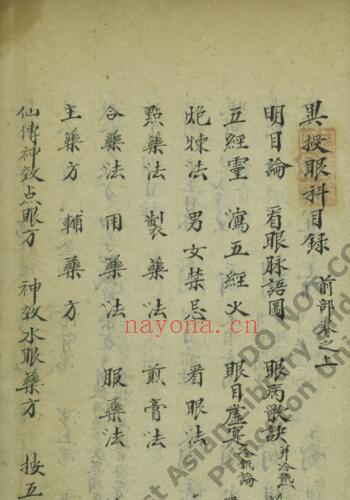 異授眼科目錄 前部卷之上
明目論 看眼脉語圖 眼病歌訣 并冷熱
五經靈 瀉五經火 眼目虛寔 冷熱論
炮煉法 男女禁忌 看眼法
點藥法 製藥法 煎膏法
合藥法 用藥法 服藥法
主藥方 輔藥方
仙傳神效点眼方 神效水眼藥方 按五
nayona.cn
DO NOT CO
st Asian Library and
Princeton Univ